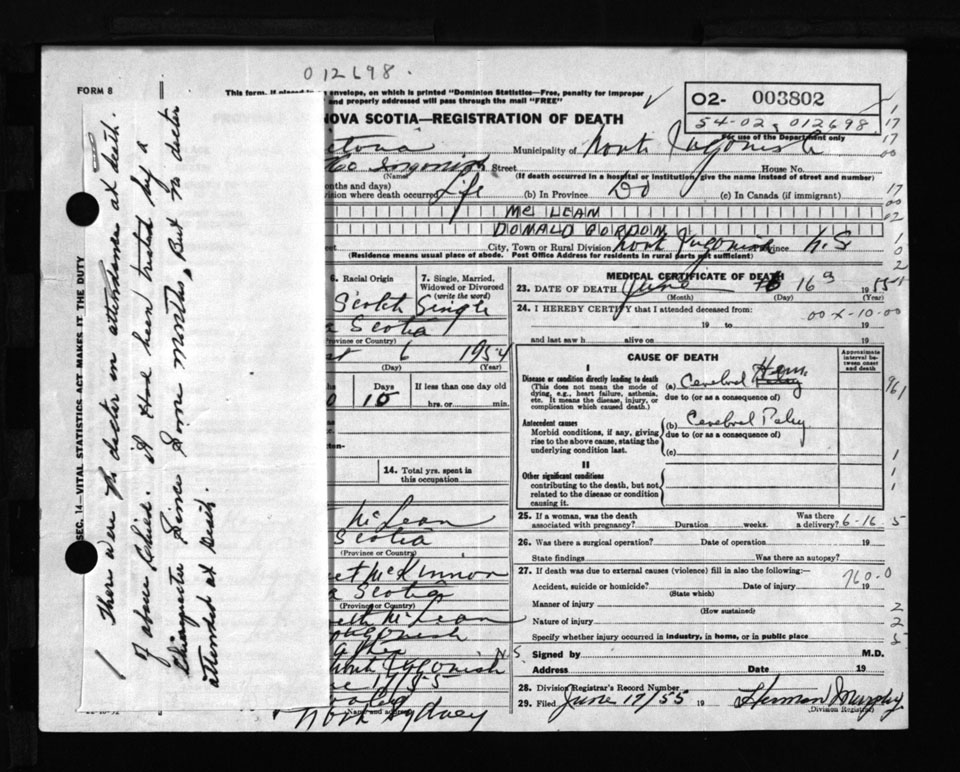 012698.
FORM 8
This form, if placed
envelope, on which is printed "Dominion Statistics—Free, penalty for improper
and properly addressed will pass through the mail "FREE"
02- 003802
54-02-012698
For use of the Department only
NOVA SCOTIA—REGISTRATION OF DEATH
Municipality of North Ingonish
Street House No.
(Name) (If death occurred in a hospital or institution, give the name instead of street and number)
onths and days)
vision where death occurred Life (b) In Province Do (c) In Canada (if immigrant)
Mc LEAN
DONALD GORDON
City, Town or Rural Division North Ingonish Province N.S
(Residence means usual place of abode. Post Office Address for residents in rural parts not sufficient)
SEC. 14—VITAL STATISTICS ACT MAKES IT THE DUTY
There were no doctor in attendance at death.
of above child. it Had been treated by a
Chiropractor Since Some months, But no doctor
attended at Death.
6. Racial Origin
Scotch
7. Single, Married, Widowed or Divorced
(write the word)
Single
a Scotia
(Province or Country)
6 1954
(Day) (Year)
Days If less than one day old
10 hrs. or min.
14. Total yrs. spent in this occupation
McLean
Scotia
(Province or Country)
et McKinnon
a Scotia
(Province or Country)
McLean
Ingonish
N.S
Ingonish
17/55
Name and address
North Sydney
MEDICAL CERTIFICATE OF DEATH
23. DATE OF DEATH June 16 1955
(Month) (Day) (Year)
24. I HEREBY CERTIFY that I attended deceased from:
00 x-10-00
19 to 19
and last saw h alive on 19
CAUSE OF DEATH
Approximate interval between onset and death
I
Disease or condition directly leading to death
(This does not mean the mode of dying, e.g., heart failure, asthenia, etc. It means the disease, injury, or complication which caused death.)
(a) Cerebral Hem.
due to (or as a consequence of)
961
Antecedent causes
Morbid conditions, if any, giving rise to the above cause, stating the underlying condition last.
(b) Cerebral Palsy
due to (or as a consequence of)
(c)
II
Other significant conditions
contributing to the death, but not related to the disease or condition causing it.
25. If a woman, was the death associated with pregnancy? Duration weeks. Was there a delivery? 6-16 5
26. Was there a surgical operation? Date of operation 19
State findings Was there an autopsy?
27. If death was due to external causes (violence) fill in also the following:—
Accident, suicide or homicide? Date of injury 19
760.0
(State which)
Manner of injury
(How sustained)
Nature of injury
Specify whether injury occurred in industry, in home, or in public place
Signed by M.D.
Address Date 19
28. Division Registrar's Record Number
29. Filed June 17/55 19 Herman Murphy
(Division Registrar)